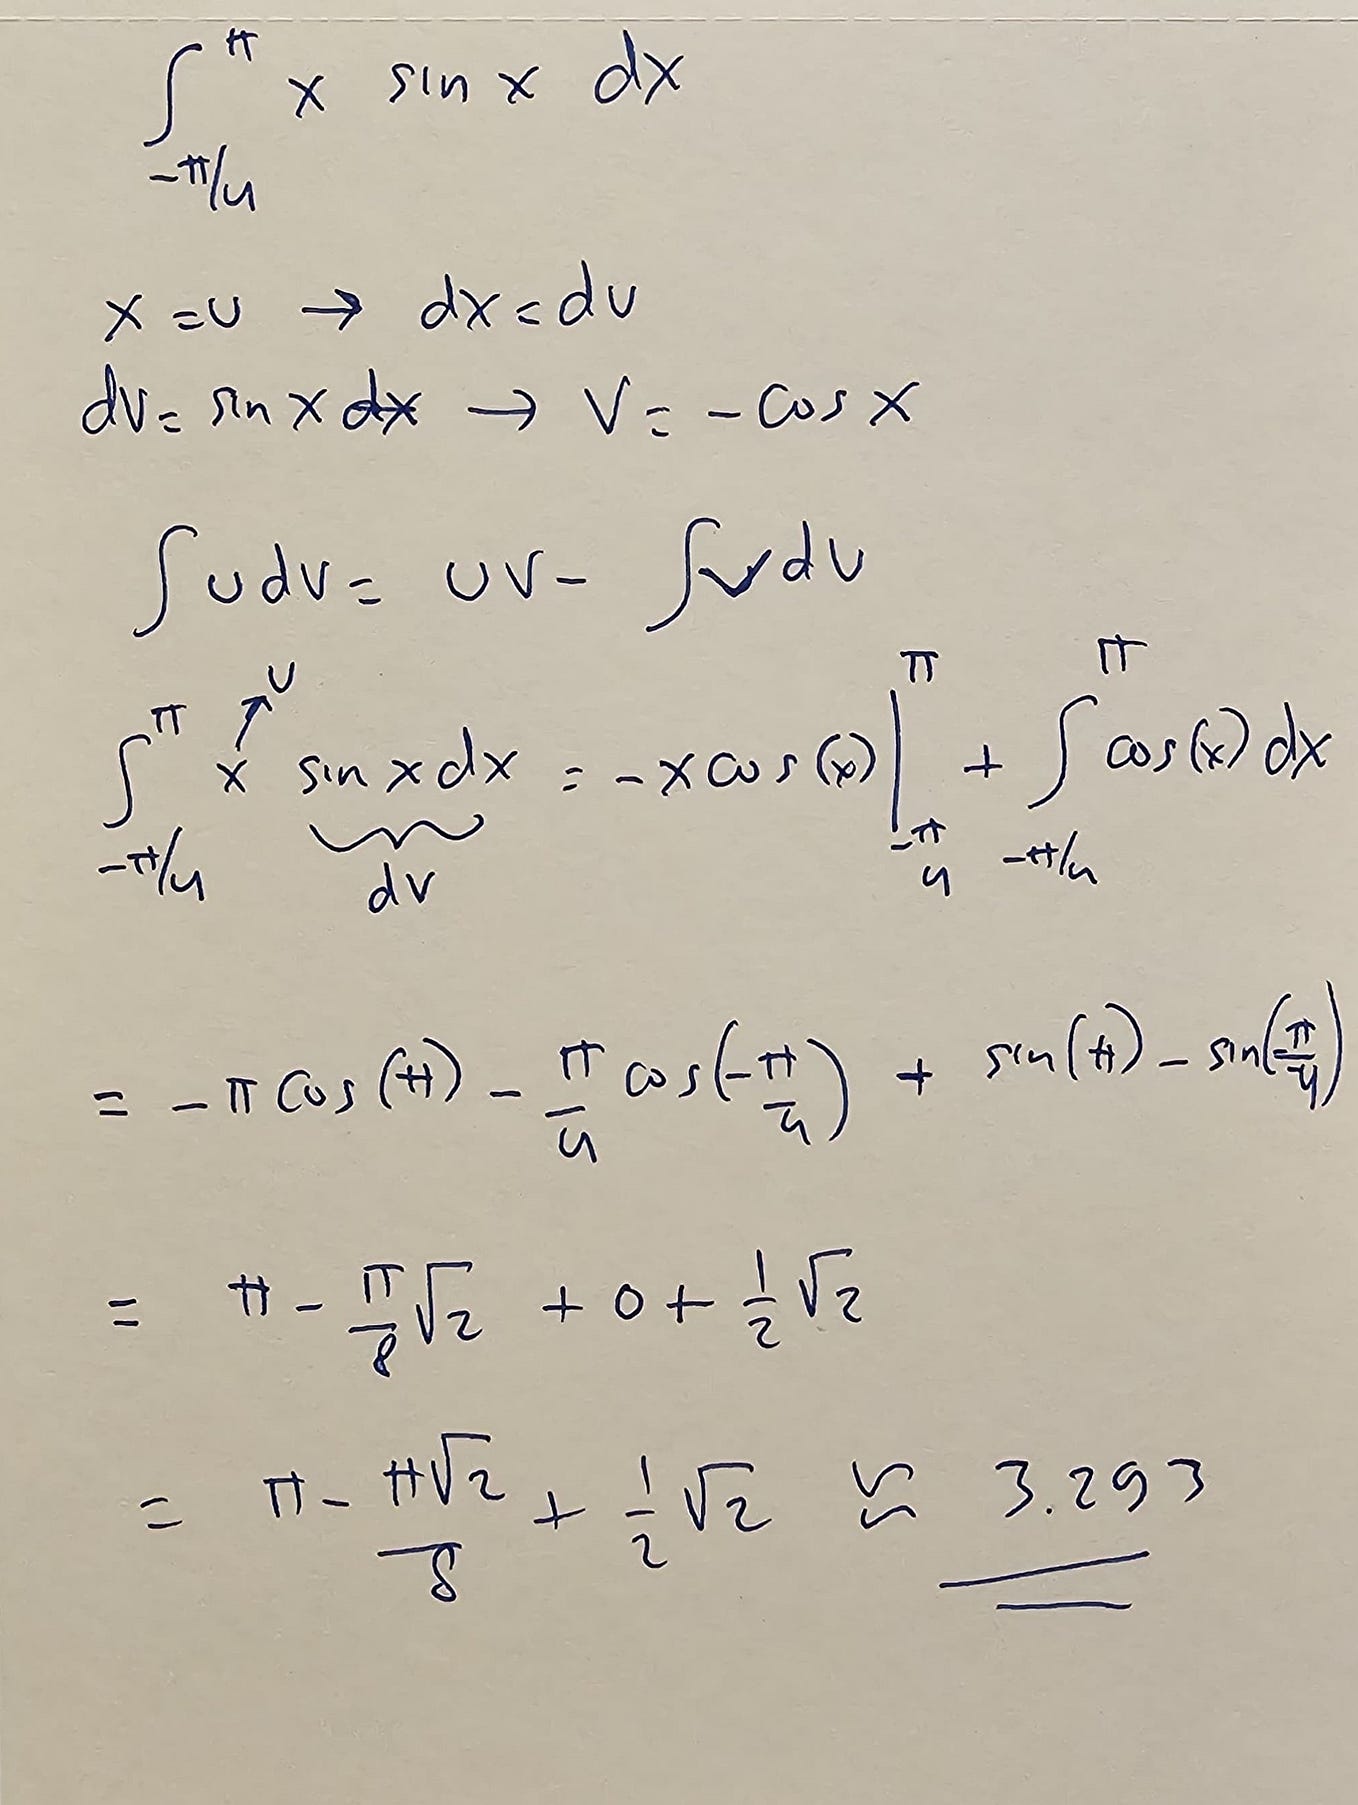 ∫_{-π/4}^{π} x sin x dx
x = u → dx = du
dv = sin x dx → v = - cos x
∫ u dv = uv - ∫ v du
∫_{-π/4}^{π} x↗u sin x dx (dv) = -x cos(x) |_{-π/4}^{π} + ∫_{-π/4}^{π} cos(x) dx
= -π cos(π) - π/4 cos(-π/4) + sin(π) - sin(π/4)
= π - π/8 √2 + 0 + 1/2 √2
= π - π√2/8 + 1/2 √2 ≈ 3.293